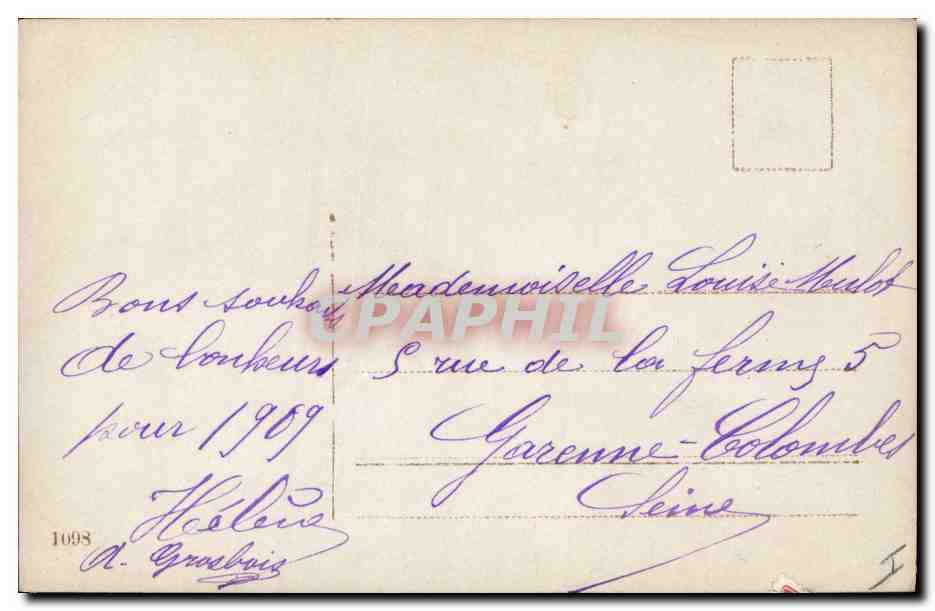 Bons souhaits
de bonheurs
pour 1909
Hélène
A. Grosbois
1098
Mademoiselle Louise Mulot
5 rue de la ferme 5
Garenne-Colombes
Seine
CPAPHIL
I